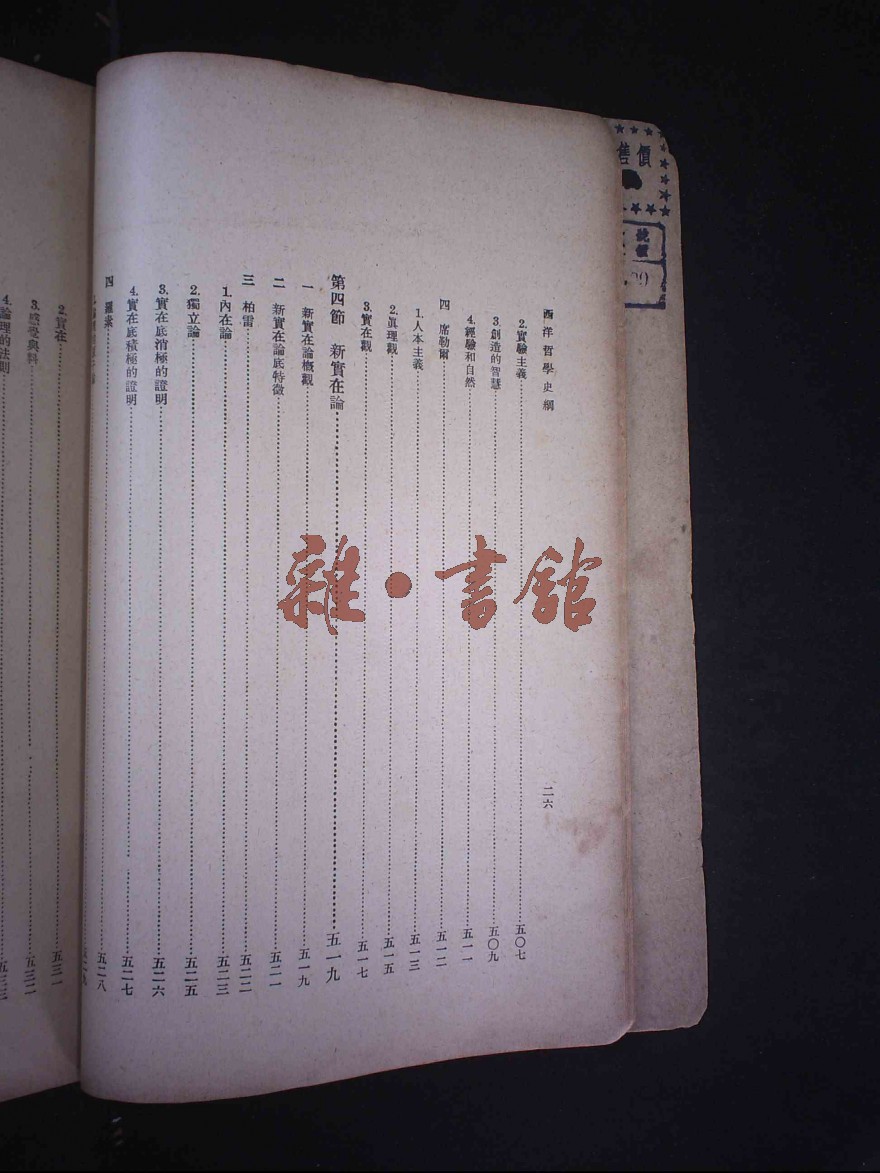 西洋哲學史綱
二六
2.實驗主義 五〇七
3.創造的智慧 五〇九
4.經驗和自然 五一一
四 席勒爾 五一二
1.人本主義 五一三
2.眞理觀 五一五
3.實在觀 五一七
第四節 新實在論 五一九
一 新實在論槪觀 五一九
二 新實在論底特徵 五二一
三 柏雷 五二二
1.內在論 五二三
2.獨立論 五二五
3.實在底消極的證明 五二六
4.實在底積極的證明 五二七
四 羅素 五二八
2.實在 五三一
3.感覺與料 五三二
4.論理的法則 五三三
售價
雜·書館